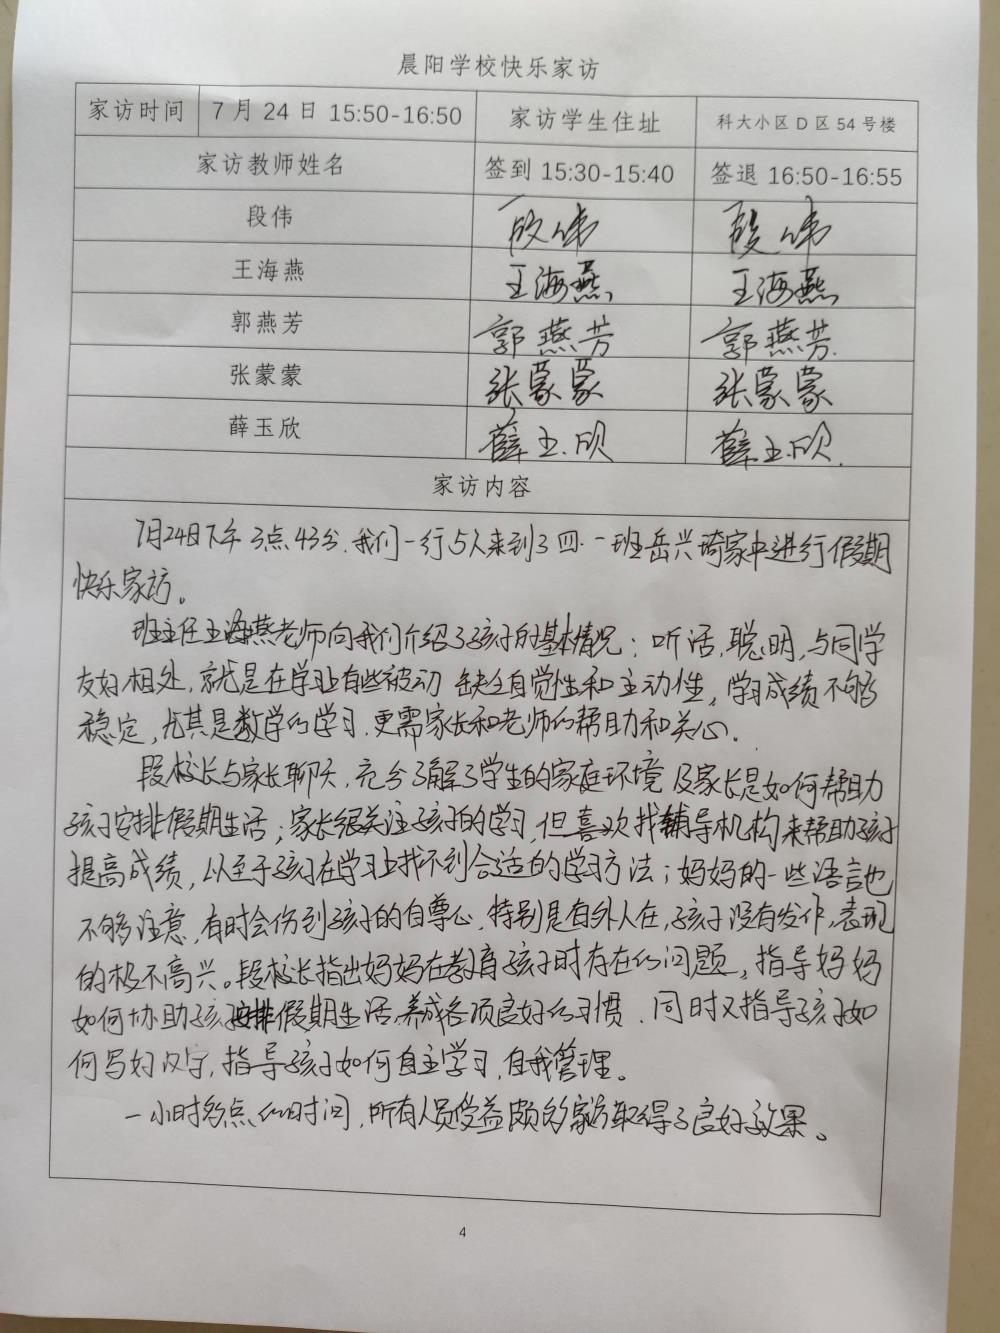 晨阳学校快乐家访
家访时间 7月24日 15:50-16:50 家访学生住址 科大小区D区54号楼
家访教师姓名 签到 15:30-15:40 签退 16:50-16:55
段伟 段伟 段伟
王海燕 王海燕 王海燕
郭燕芳 郭燕芳 郭燕芳
张蒙蒙 张蒙蒙 张蒙蒙
薛玉欣 薛玉欣 薛玉欣
家访内容
7月24日下午3点43分,我们一行5人来到了四·一班岳兴琦家中进行假期
快乐家访。
班主任王海燕老师向我们介绍了孩子的基本情况:听话,聪明,与同学
友好相处,就是在学习上有些被动 缺乏自觉性和主动性,学习成绩不够
稳定,尤其是数学的学习,更需家长和老师的帮助和关心.
段校长与家长聊天,充分了解了学生的家庭环境及家长是如何帮助
孩子安排假期生活;家长很关注孩子的学习,但喜欢找辅导机构来帮助孩子
提高成绩,以至于孩子在学习上找不到合适的学习方法;妈妈的一些语言也
不够注意,有时会伤到孩子的自尊心,特别是有外人在,孩子没有发作,表现
的极不高兴。段校长指出妈妈在教育孩子时存在的问题,指导妈妈
如何协助孩子安排假期生活,养成各项良好的习惯,同时又指导孩子如
何写好汉字,指导孩子如何自主学习,自我管理。
一小时多点的时间,所有人员受益颇的家访取得了良好效果。
4